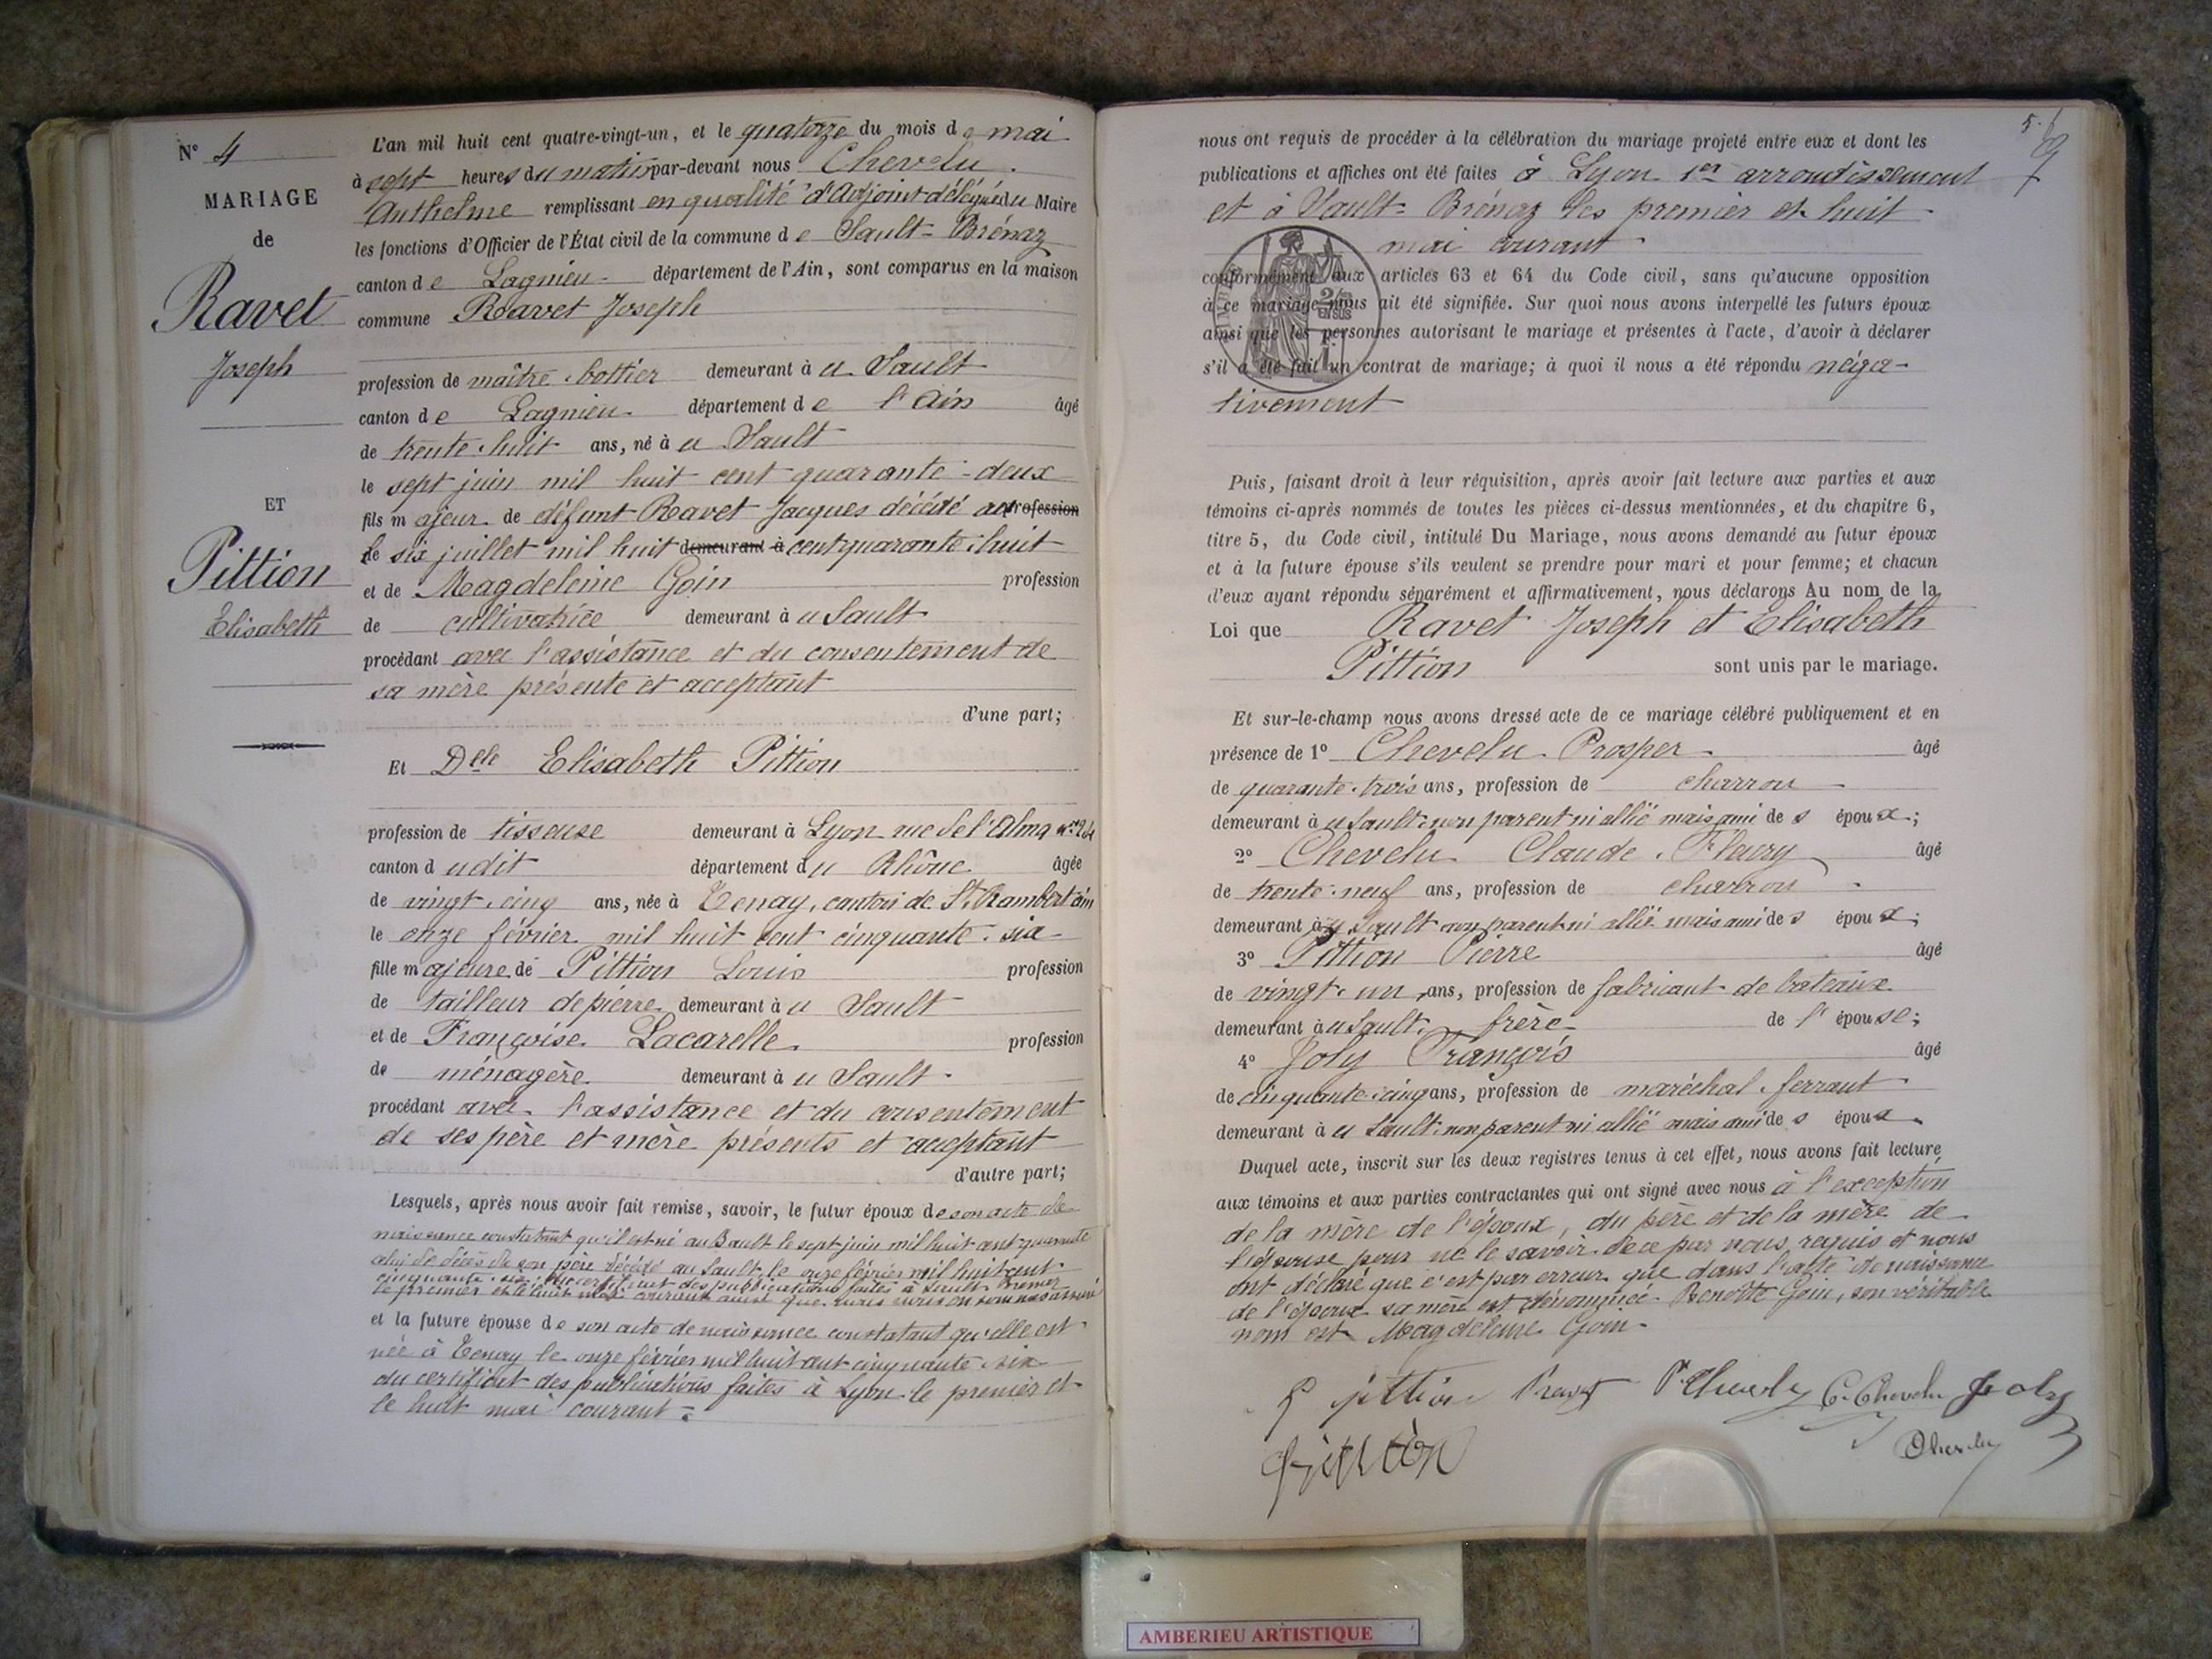 N° 4
MARIAGE
de
Ravet
Joseph
ET
Pittion
Elisabeth
L'an mil huit cent quatre-vingt-un, et le quatorze du mois de mai
à sept heures du matin par-devant nous Chevelu
Anthelme remplissant en qualité d'Adjoint délégué du Maire
les fonctions d'Officier de l'État civil de la commune de Sault-Brénaz
canton de Lagnieu département de l'Ain, sont comparus en la maison
commune Ravet Joseph
profession de maître-bottier demeurant à u Sault
canton de Lagnieu département de l'Ain âgé
de trente-huit ans, né à u Sault
le sept juin mil huit cent quarante-deux
fils majeur de défunt Ravet Jacques décédé au profession
le six juillet mil huit demeurant à cent quarante-huit
et de Magdeleine Goin profession
de cultivatrice demeurant à u Sault
procédant avec l'assistance et du consentement de
sa mère présente et acceptant
d'une part;
Et Delle Elisabeth Pittion
profession de tisseuse demeurant à Lyon rue de l'Alma
canton dudit département du Rhône âgée
de vingt-cinq ans, née à Tenay, canton de St Rambert ain
le onze février mil huit cent cinquante-six
fille majeure de Pittion Louis profession
de tailleur de pierre demeurant à u Sault
et de Françoise Lacarelle profession
de ménagère demeurant à u Sault
procédant avec l'assistance et du consentement
de ses père et mère présents et acceptant
d'autre part;
Lesquels, après nous avoir fait remise, savoir, le futur époux de son acte de
naissance constatant qu'il est né au Sault le sept juin mil huit cent quarante
celui de décès de son père décédé au Sault le onze février mil huit cent
cinquante-six, du certificat des publications faites à Sault-Brénaz
le premier et le huit mai courant ainsi que nous nous en sommes assuré
et la future épouse de son acte de naissance constatant qu'elle est
née à Tenay le onze février mil huit cent cinquante-six
du certificat des publications faites à Lyon le premier et
le huit mai courant
5.
nous ont requis de procéder à la célébration du mariage projeté entre eux et dont les
publications et affiches ont été faites à Lyon 1er arrondissement
et à Sault-Brénaz les premier et huit
mai courant
conformément aux articles 63 et 64 du Code civil, sans qu'aucune opposition
à ce mariage nous ait été signifiée. Sur quoi nous avons interpellé les futurs époux
ainsi que les personnes autorisant le mariage et présentes à l'acte, d'avoir à déclarer
s'il a été fait un contrat de mariage; à quoi il nous a été répondu néga-
tivement
Puis, faisant droit à leur réquisition, après avoir fait lecture aux parties et aux
témoins ci-après nommés de toutes les pièces ci-dessus mentionnées, et du chapitre 6,
titre 5, du Code civil, intitulé Du Mariage, nous avons demandé au futur époux
et à la future épouse s'ils veulent se prendre pour mari et pour femme; et chacun
d'eux ayant répondu séparément et affirmativement, nous déclarons Au nom de la
Loi que Ravet Joseph et Elisabeth
Pittion sont unis par le mariage.
Et sur-le-champ nous avons dressé acte de ce mariage célébré publiquement et en
présence de 1° Chevelu Prosper âgé
de quarante-trois ans, profession de charron
demeurant à u Sault non parent ni allié mais ami des époux;
2° Chevelu Claude Fleury âgé
de trente-neuf ans, profession de charron
demeurant à u Sault non parent ni allié mais ami des époux;
3° Pittion Pierre âgé
de vingt-un ans, profession de fabricant de bateaux
demeurant à u Sault, frère de l'épouse;
4° Joly François âgé
de cinquante-cinq ans, profession de maréchal-ferrant
demeurant à u Sault non parent ni allié mais ami des époux
Duquel acte, inscrit sur les deux registres tenus à cet effet, nous avons fait lecture
aux témoins et aux parties contractantes qui ont signé avec nous à l'exception
de la mère de l'époux, du père et de la mère de
l'épouse pour ne le savoir de ce par nous requis et nous
ont déclaré que c'est par erreur que dans l'acte de naissance
de l'époux sa mère est dénommée Benoîte Goin, son véritable
nom est Magdeleine Goin
P pittion Ravet P. Chevelu C. Chevelu Joly
Pittion Chevelu
AMBERIEU ARTISTIQUE